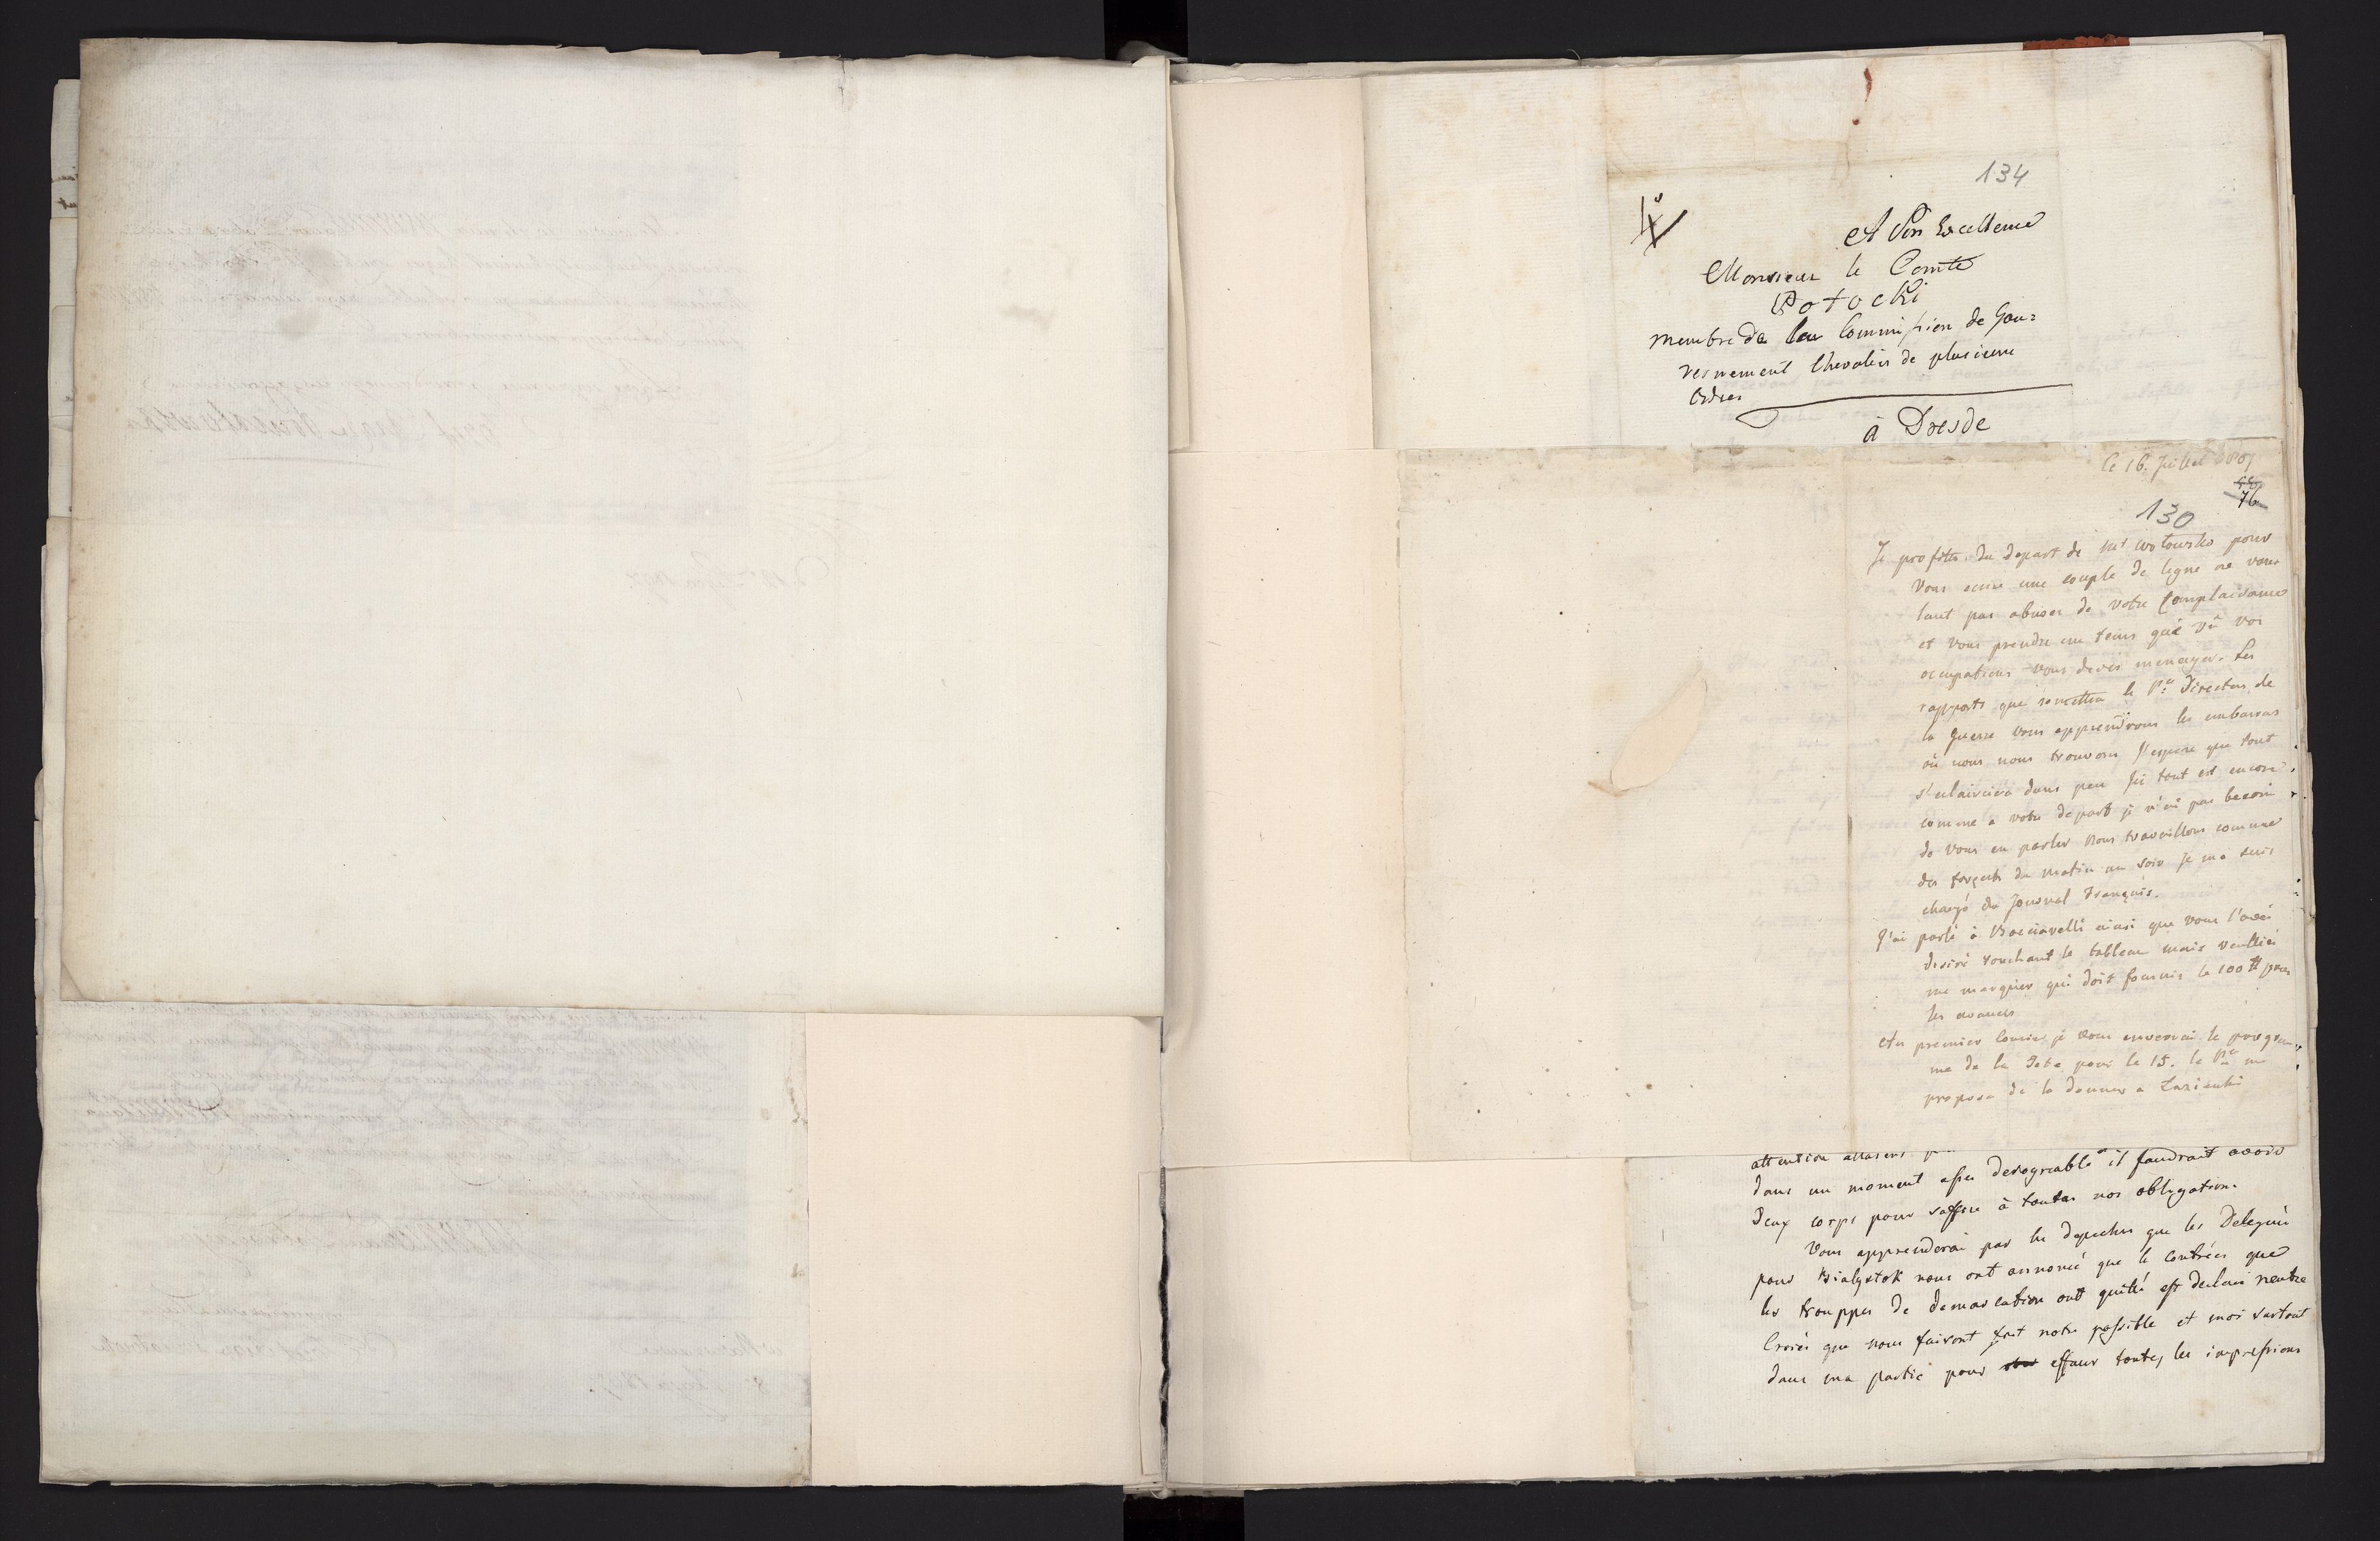 134
A Son Excellence
Monsieur le Comte
Potocki
membre de la Commission de Gou=
vernement Chevalier de plusieurs
Ordres
à Dresde
le 16. Juillet
76
130
Je profite du depart de Mr pour
vous ecrire une couple de ligne ne vou-
lant pas abuser de votre Complaisance
et vous prendre un tems que vû vos
occupations vous devés menager. Les
rapports que remettra le Pce Directeur de
la guerre vous apprendrons les embarras
où nous nous trouvons J'espere que tout
s'eclaircira dans peu Ici tout est encore
comme a votre depart je n'ai pas besoin
de vous en parler Nous travaillons comme
des forçats du matin au soir Je me suis
chargé du Journal Français.
J'ai parlé à Bacciarelli ainsi que vous l'avés
desiré touchant le tableau mais veuillés
me marquer qui doit fournir le 100 # pour
les avances
Au premier Courier je vous enverrai le program-
me de la Fete pour le 15. le Pce me
propose de la donner a Lazienki
attention
dans un moment assés desagreable il faudrait avoir
Deux corps pour suffire à toutes nos obligation.
Vous apprenderai par les depeches que les Delegués
pour Bialystok nous ont annoncé que le Contrées que
les trouppes de demarcation ont quitté est declaré neutre
Croiés que nous fairont tout notre possible et moi surtout
dans ma partie pour effacer toutes les impressions